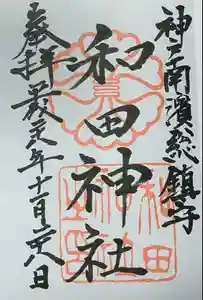 神戸南濱総鎮守
和田神社
奉拝
年十一月
八日
和田
神社
之印